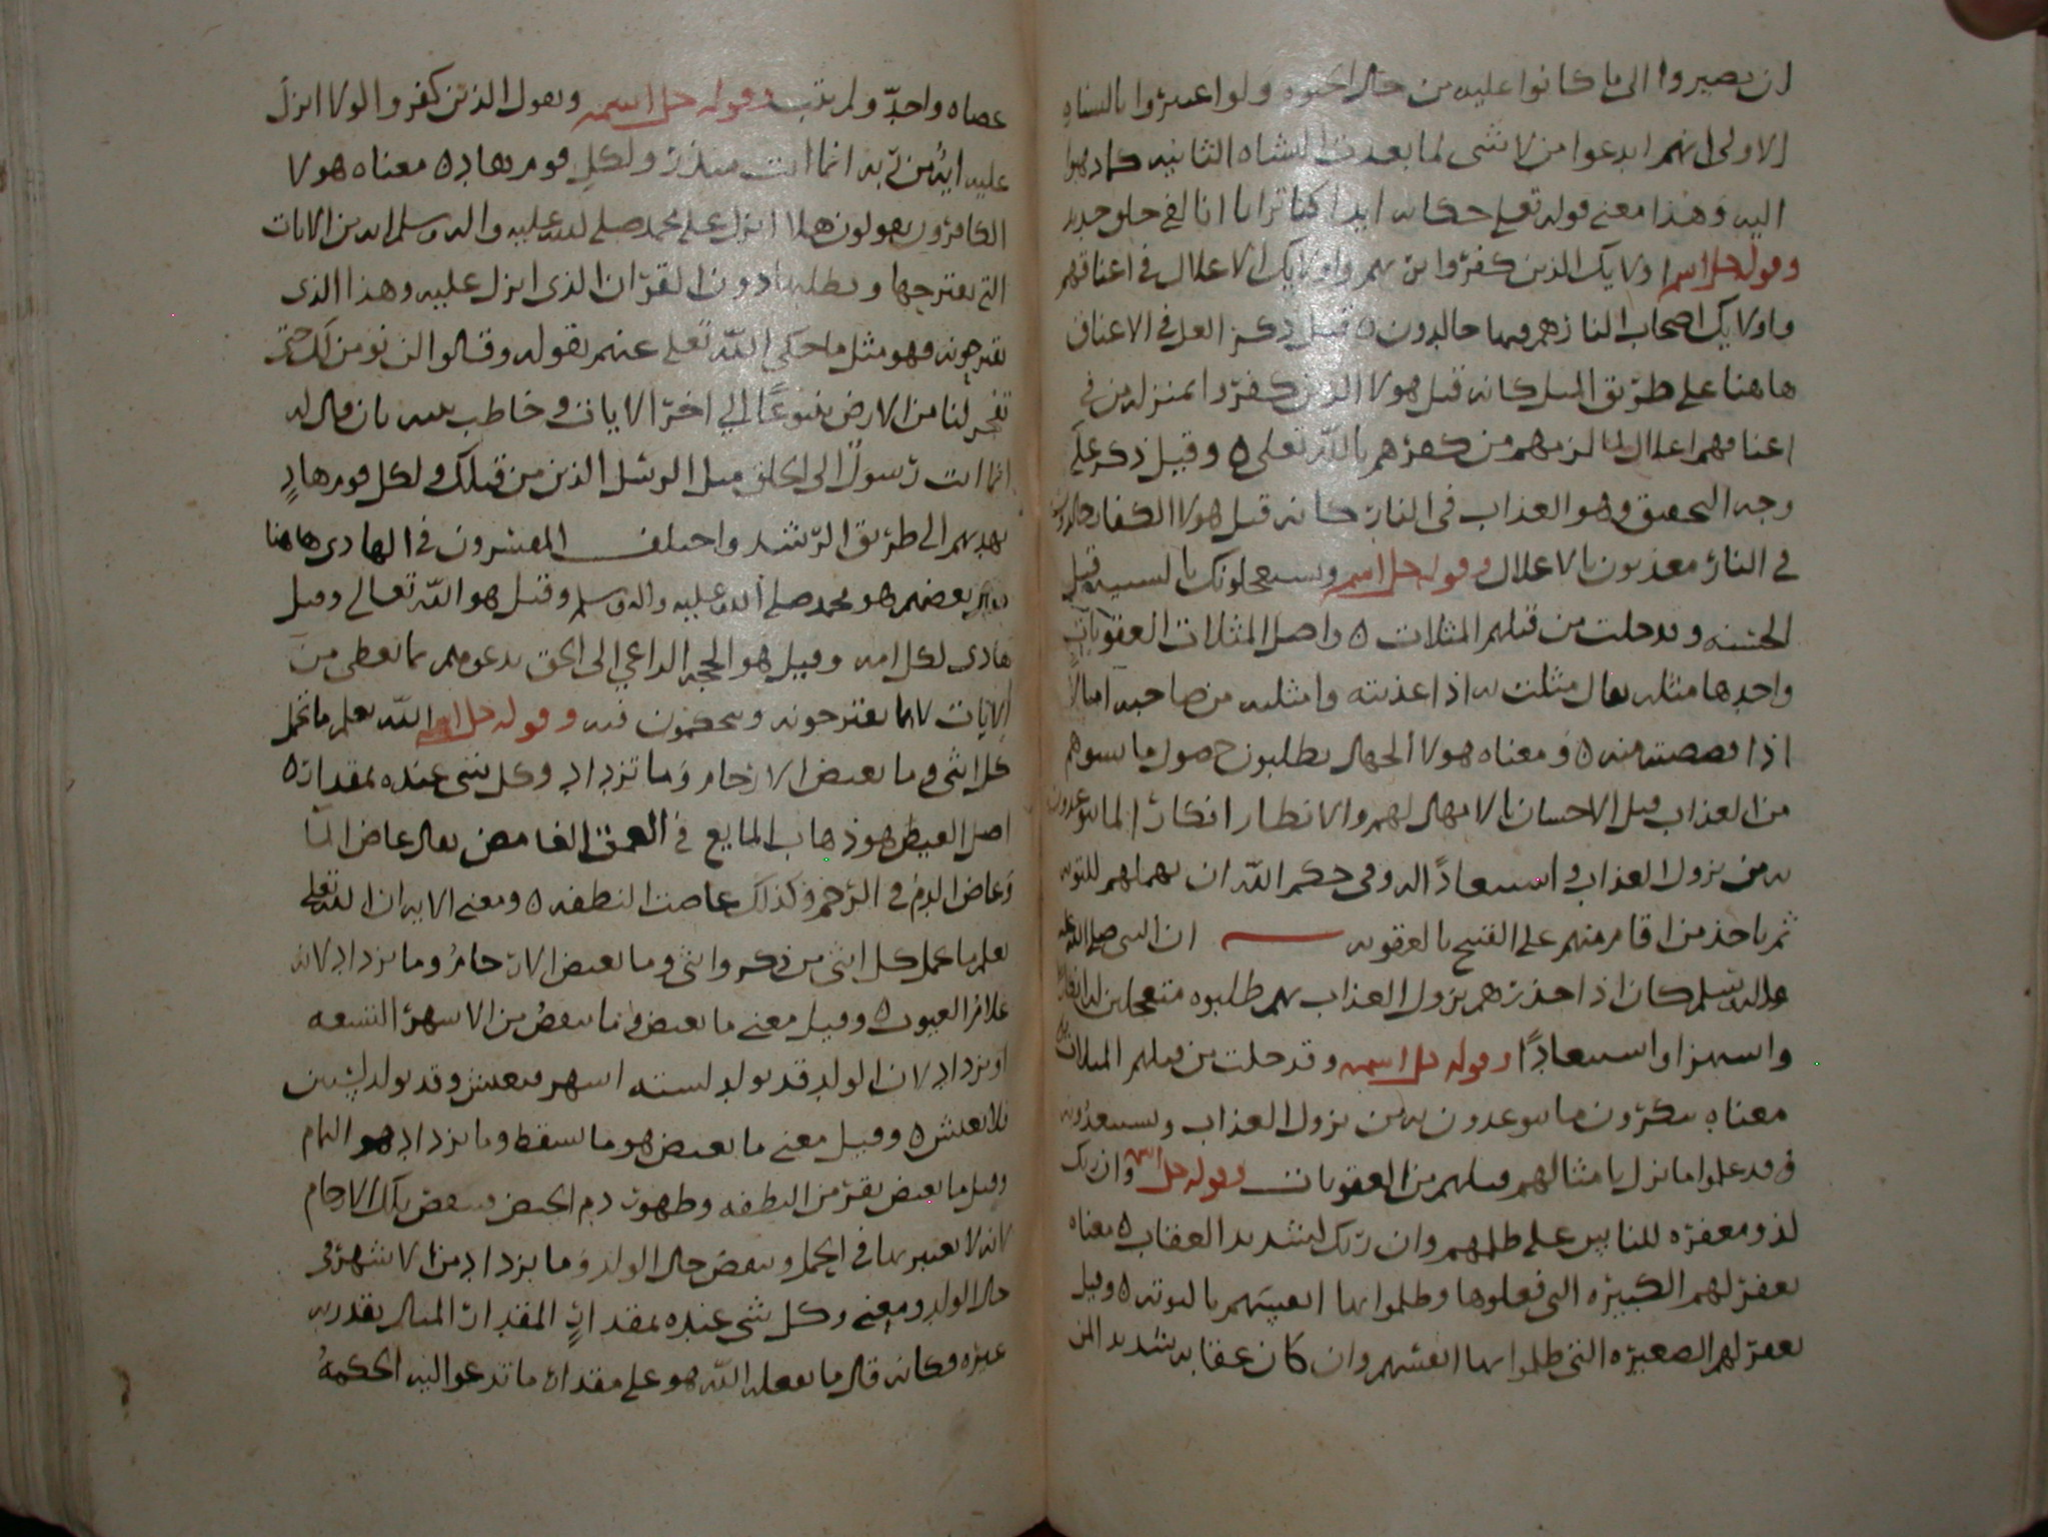 ان يصيروا الى ما كانوا عليه من حال الحيوه ولو اعتبروا بالنشاه
الاولى انهم ابدعوا من لا شى لما بعدت النشاه الثانيه كما ذهبوا
اليه وهذا معنى قوله تعلى حكايه ايذا كنا ترابا انا لفى خلق جديد
وقوله جل اسمه اولايك الذين كفروا بربهم واولايك الاغلال في اعناقهم
واولايك اصحاب النار هم فيها خالدون ه قيل ذكر الغل في الاعناق
هاهنا على طريق المثل كانه قيل هولا الذين كفروا بمنزله من في
اعناقهم اغلال لما لزمهم من كفرهم بالله تعلى ه وقيل ذكر على
وجه التحقيق وهو العذاب فى النار كانه قيل هولا الكفار خالدون
في النار معذبون بالاغلال وقوله جل اسمه ويستعجلونك بالسييه قبل
الحسنه وقد خلت من قبلهم المثلات ه واصل المثلات العقوبات
واحدها مثله يقال مثلت به اذا عذبته وامثلته من صاحبه امثالا
اذا قصصته منه ه ومعناه هولا الجهال يطلبون حصول ما يسوهم
من العذاب قبل الاحسان بالامهال لهم والانظار انكارا لما يتوعدون
به من نزول العذاب واستبعادًا له وفى حكم الله ان يمهلهم للتوبه
ثم ياخذ من اقام منهم على القبيح بالعقوبه ان النبى صلى الله عليه
واله وسلم كان اذا حذرهم نزول العذاب بهم طلبوه متعجلين له
واستهزا واستبعادًا وقوله جل اسمه وقد خلت من قبلهم المثلات
معناه ينكرون ما يتوعدون به من نزول العذاب ويستبعدونه
وقد علموا ما نزل بامثالهم قبلهم من العقوبات وقوله جل اسمه وان ربك
لذو مغفره للناس على ظلمهم وان ربك لشديد العقاب ه معناه
يغفر لهم الكبيره التى فعلوها وظلموا بها انفسهم بالتوبه ه وقيل
يغفر لهم الصغيره التى ظلموا بها انفسهم وان كان عقابه شديد المن
عصاه واحدّ ولم يتب وقوله جل اسمه ويقول الذين كفروا لولا انزل
عليه ايه من ربه انما انت منذر ولكل قوم هاد ه معناه هولا
الكافرون يقولون هلا انزل على محمد صلى الله عليه واله وسلم ايه من الايات
التي يقترحها ويطلبها دون القران الذى انزل عليه وهذا الذى
يقترحونه فهو مثل ما حكى الله تعلى عنهم بقوله وقالوا لن نومن لك حتى
تفجر لنا من الارض ينبوعًا الى اخر الايات وخاطب نبيه بان قال له
انما انت رسولٌ الى الخلق مثل الرسل الذين من قبلك ولكل قوم هادٍ
يهديهم الى طريق الرشد واختلف المفسرون في الهادى هاهنا
بعضهم هو محمد صلى الله عليه واله وسلم وقيل هو الله تعالى وقيل
هادى لكل امه وقيل هو الحجه الداعي الى الحق يدعوهم بما يعطى من
الايات لا بما يقترحونه ويتحكمون فيه وقوله جل اسمه الله يعلم ما تحمل
كل انثى وما تغيض الارحام وما تزداد وكل شى عنده بمقدار ه
اصل الغيض هو ذهاب المايع في العمق الغامض يقال غاض الما
وغاض الدم في الرحم وكذلك غاضت النطفه ه ومعنى الايه ان الله تعلى
يعلم ما تحمل كل انثى من ذكر وانثى وما تغيض الارحام وما تزداد لانه
علام الغيوب ه وقيل معنى ما تغيض فى ما ينقص من الاشهر التسعه
او يزداد لان الولد قد يولد لسته اشهر فيعيش وقد يولد لسنين
فلا يعيش ه وقيل معنى ما تغيض هو ما يسقط وما يزداد هو التام
وقيل ما تغيض بقر من النطفه وظهور دم الحيض فينقص تلك الايام
لانه لا يعتبر بها في الحمل وينقص حال الولد وما يزداد من الاشهر في
حال الولد ومعنى وكل شى عنده بمقدارٍ المقدار المثال يقدر به
غيره فكانه قال ما يفعله الله هو على مقدار ما تدعو اليه الحكمهُ